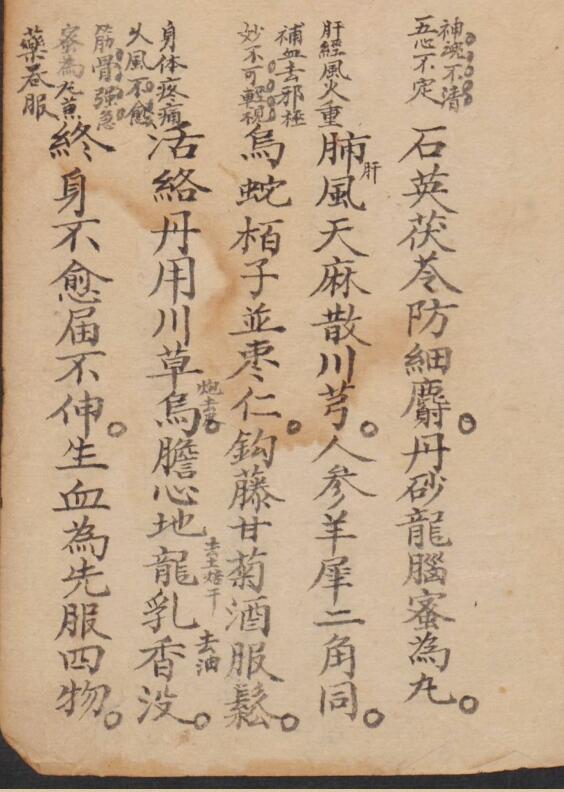 神魂不清
五心不定
石英茯苓防細麝。丹砂龍腦蜜為丸。
肝經風火重
肺風天麻散川芎。人參羊犀二角同。
肝
補血去邪極
妙不可輕視
烏蛇栢子並棗仁。鈎藤甘菊酒服鬆。
身体疼痛
久風不愈
活絡丹用川草烏。膽心地龍乳香没。
炮去
去土焙干
去油
筋骨强急
蜜為丸蕉
藥吞服
終身不愈屈不伸。生血為先服四物。